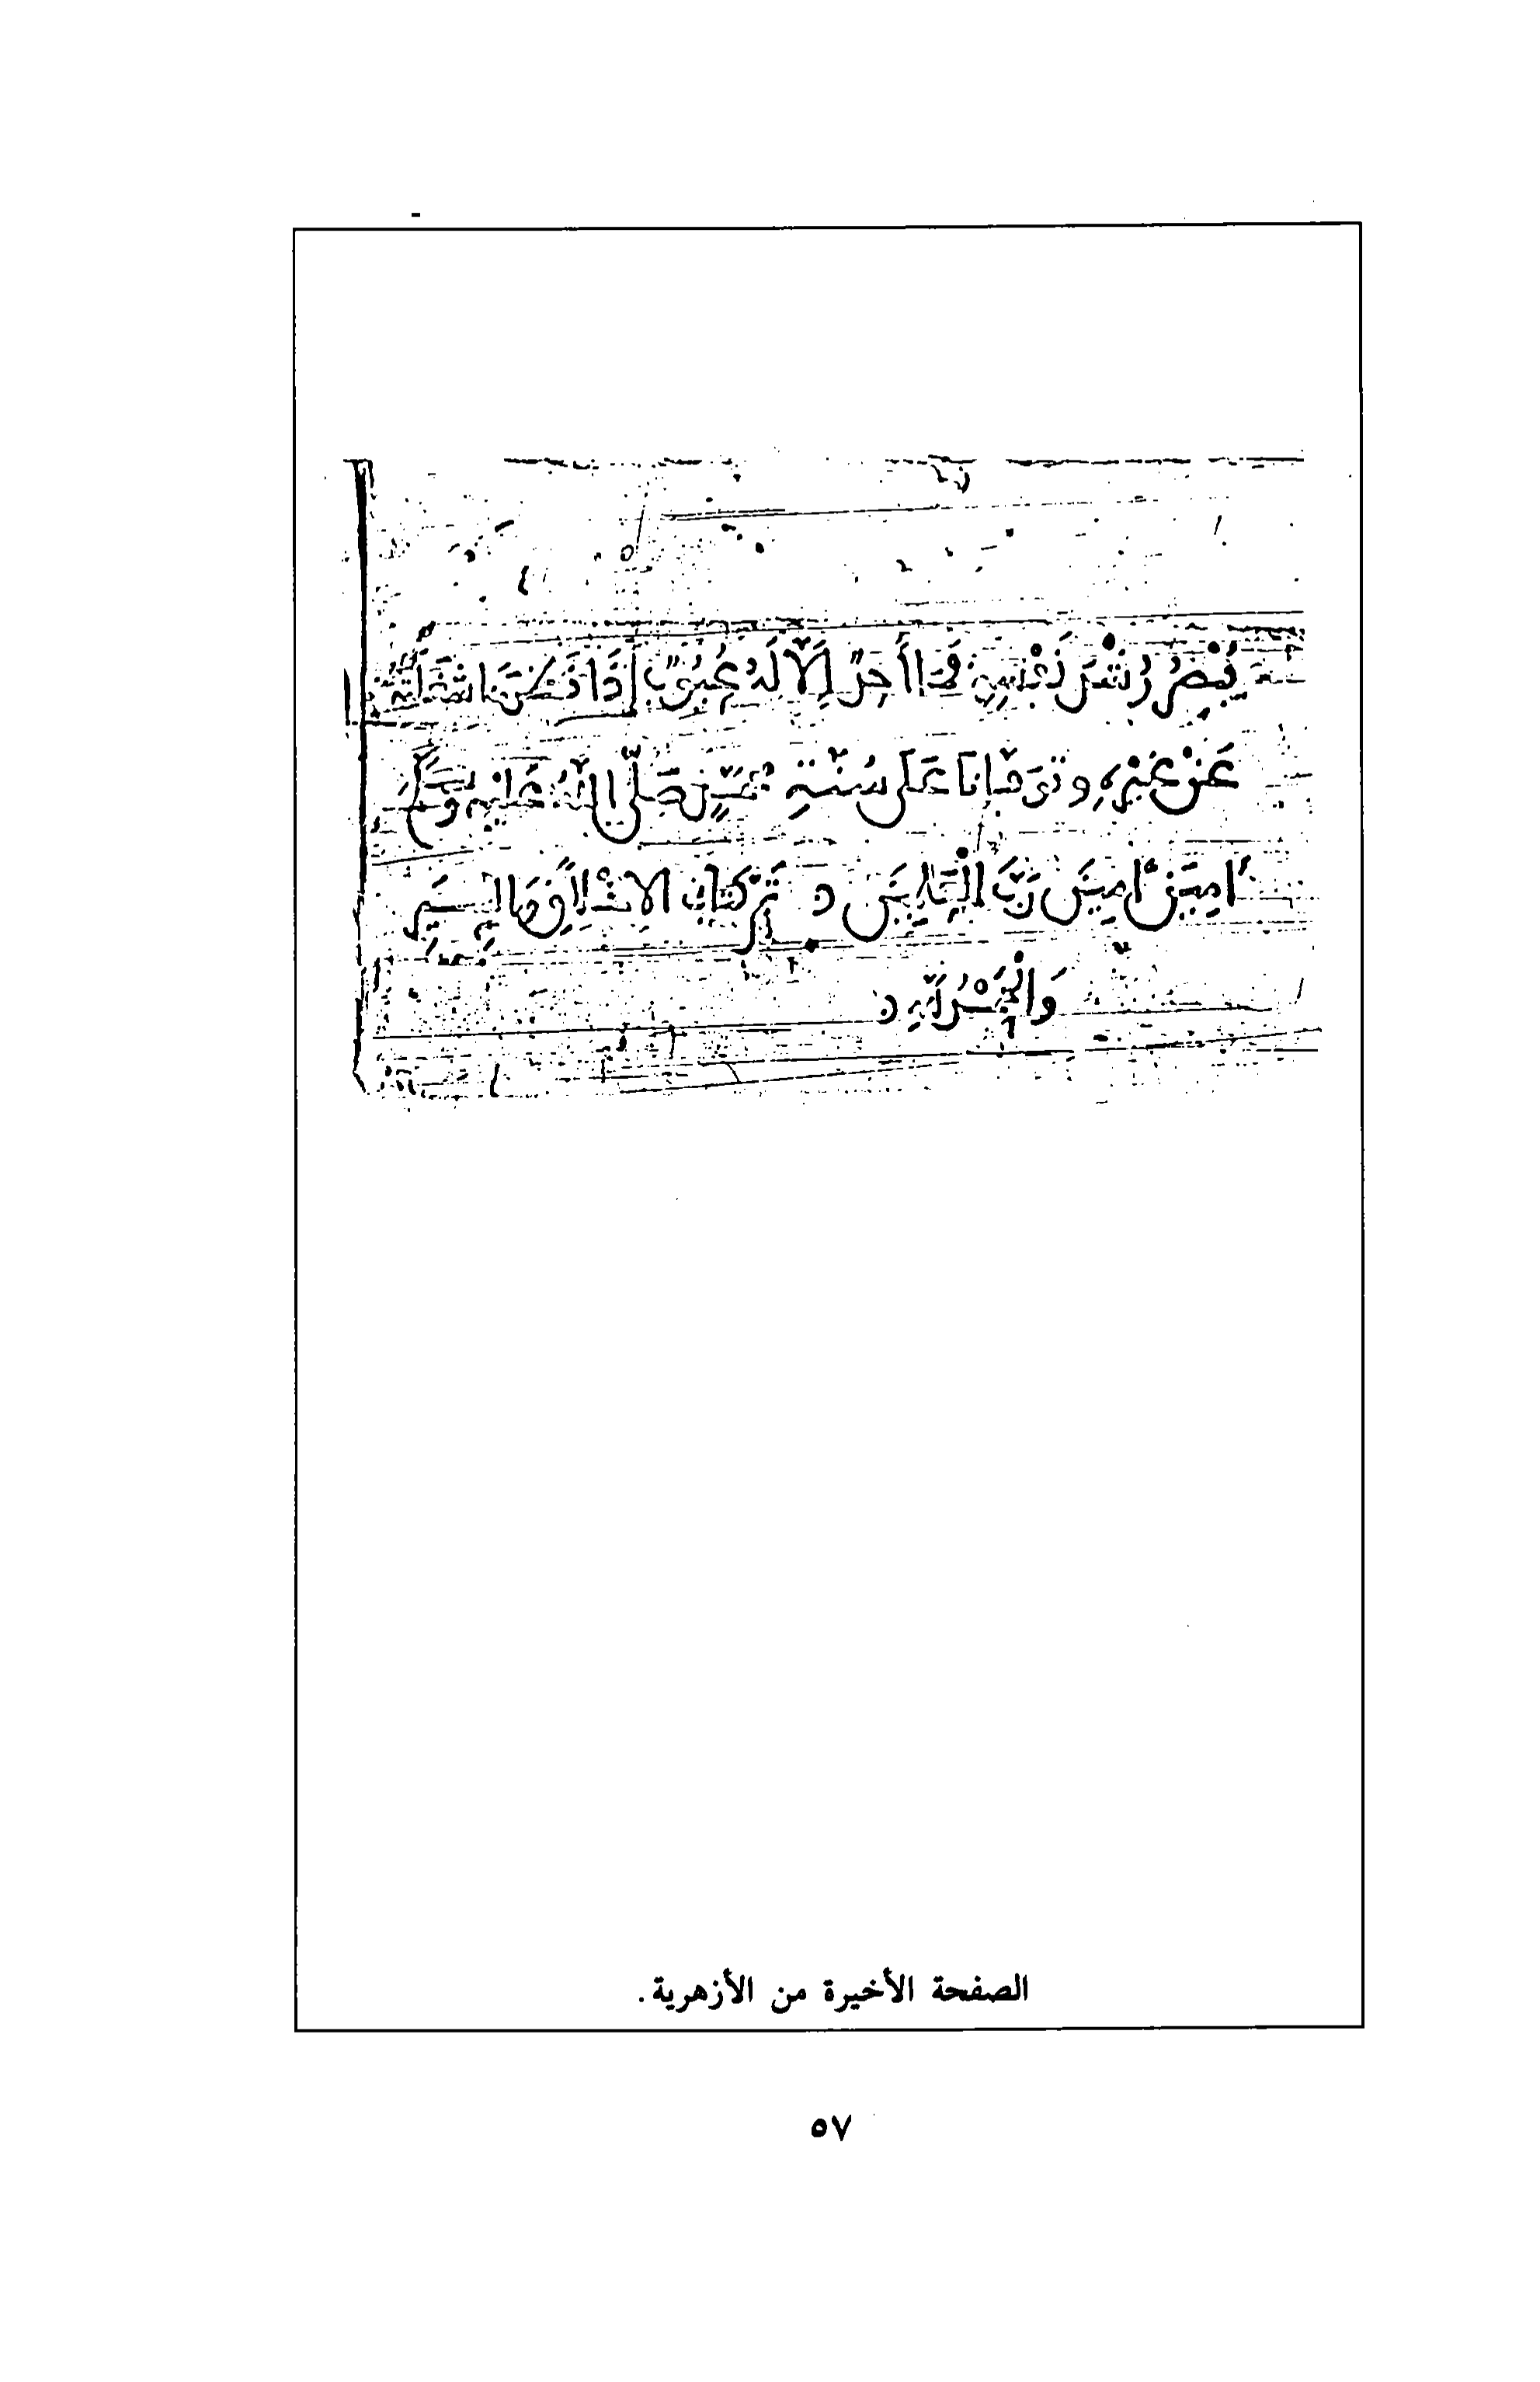 يُبْصِرُ شَرَّ نَفْسِهِ فَمَا أَحَدٌ إِلَّا لَهُ عُيُوبٌ إِذَا
عَنْ غَيْرِهِ وتوفانا عَلَى سُنَّةِ مُحَمَّدٍ صَلَّى اللهُ عَلَيْهِ وَسَلَّمَ
اٰمِينَ اٰمِينَ رَبَّ الْعَالَمِينَ ه تَمَّ كِتَابُ الاخْلَاقِ وَالسِّيَرِ
وَالْحَمْدُ لِلَّهِ ه
الصفحة الأخيرة من الأزهرية .
٥٧